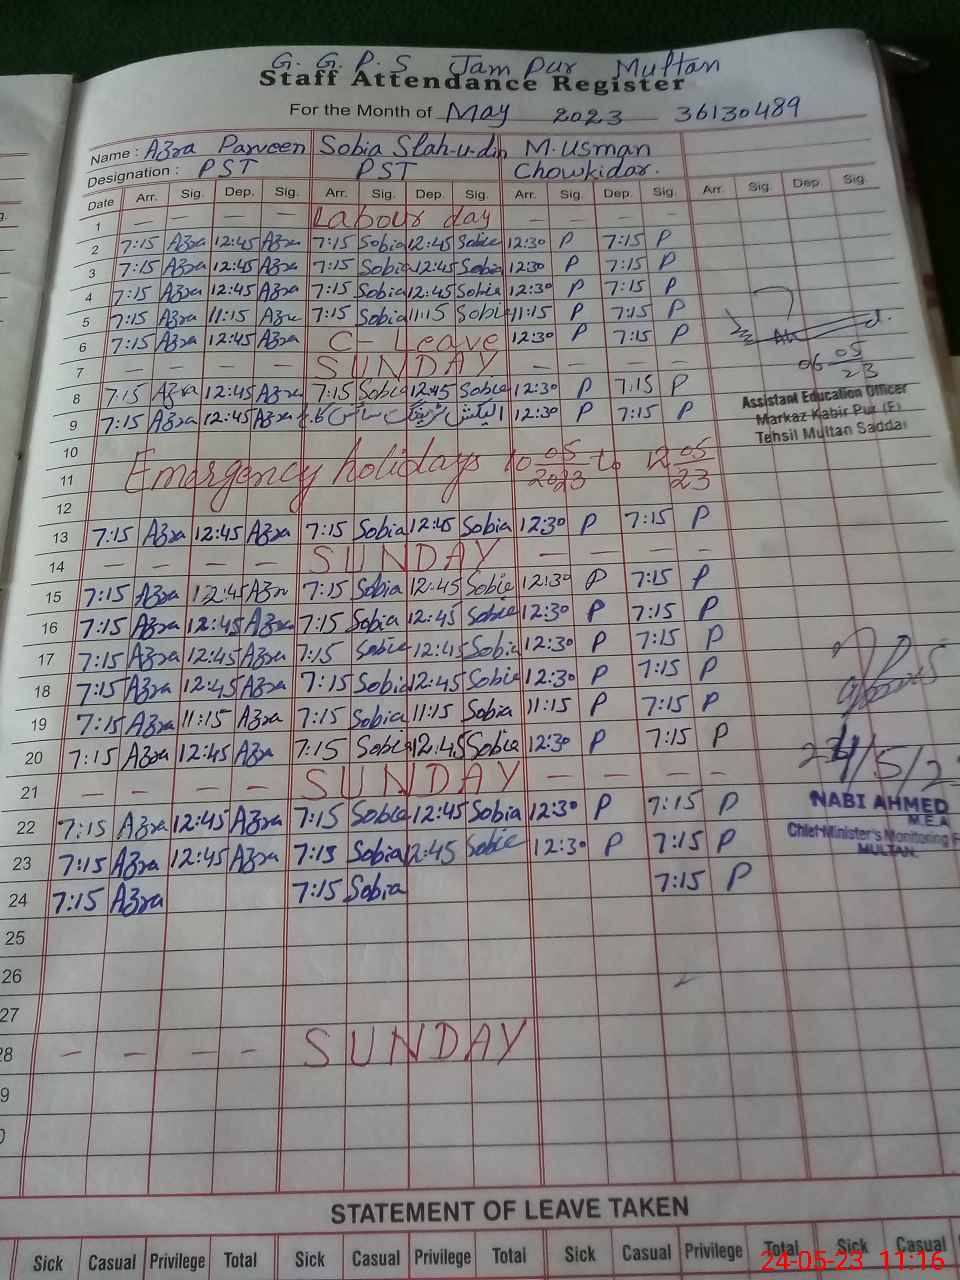 G. G. P. S Jam Pur Multan
Staff Attendance Register
For the Month of May 2023 36130489
Name : Azra Parveen Sobia Slah-u-din M. Usman
Designation : PST PST Chowkidar.
Date Arr. Sig. Dep. Sig. Arr. Sig. Dep. Sig. Arr. Sig. Dep. Sig. Arr. Sig. Dep. Sig.
1 — — — — Labour day — — — —
2 7:15 Azra 12:45 Azra 7:15 Sobia 12:45 Sobia 12:30 P 7:15 P
3 7:15 Azra 12:45 Azra 7:15 Sobia 12:45 Sobia 12:30 P 7:15 P
4 7:15 Azra 12:45 Azra 7:15 Sobia 12:45 Sobia 12:30 P 7:15 P
5 7:15 Azra 11:15 Azra 7:15 Sobia 11:15 Sobia 11:15 P 7:15 P
6 7:15 Azra 12:45 Azra C- Leave 12:30 P 7:15 P
7 — — — — SUNDAY — — — —
06 05 23
8 7:15 Azra 12:45 Azra 7:15 Sobia 12:45 Sobia 12:30 P 7:15 P
Assistant Education Officer
9 7:15 Azra 12:45 Azra 12:30 P 7:15 P
Markaz Kabir Pur (F)
Tehsil Multan Saddar
10
11 Emergency holidays 10 05 2023 to 12 05 23
12
13 7:15 Azra 12:45 Azra 7:15 Sobia 12:45 Sobia 12:30 P 7:15 P
14 — — — — SUNDAY — — — —
15 7:15 Azra 12:45 Azra 7:15 Sobia 12:45 Sobia 12:30 P 7:15 P
16 7:15 Azra 12:45 Azra 7:15 Sobia 12:45 Sobia 12:30 P 7:15 P
17 7:15 Azra 12:45 Azra 7:15 Sobia 12:45 Sobia 12:30 P 7:15 P
18 7:15 Azra 12:45 Azra 7:15 Sobia 12:45 Sobia 12:30 P 7:15 P
19 7:15 Azra 11:15 Azra 7:15 Sobia 11:15 Sobia 11:15 P 7:15 P
20 7:15 Azra 12:45 Azra 7:15 Sobia 12:45 Sobia 12:30 P 7:15 P
21 — — — — SUNDAY — — — —
22 7:15 Azra 12:45 Azra 7:15 Sobia 12:45 Sobia 12:30 P 7:15 P
NABI AHMED
M.E.A
23 7:15 Azra 12:45 Azra 7:15 Sobia 12:45 Sobia 12:30 P 7:15 P
Chief Minister's Monitoring F
MULTAN.
24 7:15 Azra 7:15 Sobia 7:15 P
25
26
27
28 — — — — SUNDAY
9
0
STATEMENT OF LEAVE TAKEN
Sick Casual Privilege Total Sick Casual Privilege Total Sick Casual Privilege Total Sick Casual
24-05-23 11:16